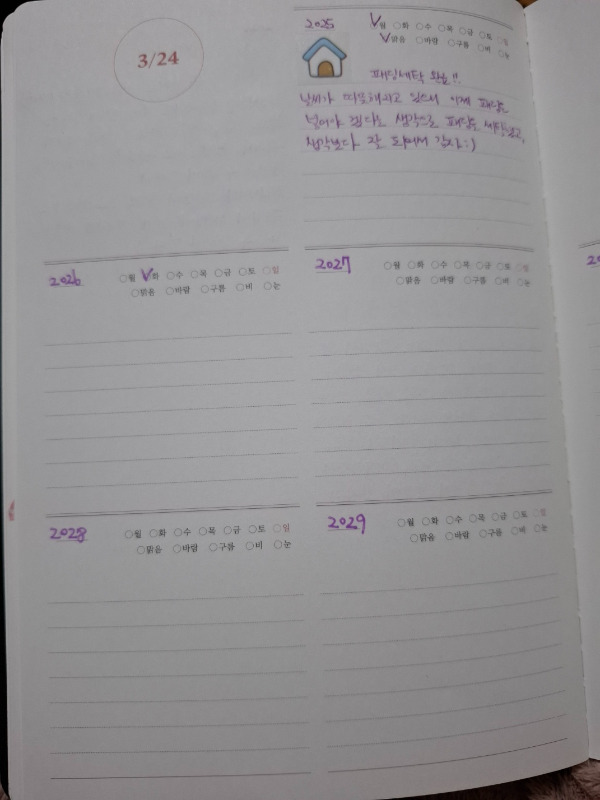 3/24
2025 V월 ○화 ○수 ○목 ○금 ○토 ○일
V맑음 ○바람 ○구름 ○비 ○눈
패딩세탁 완료!!
날씨가 따뜻해지고 있어서 이제 패딩은
넣어야 겠다는 생각으로 패딩을 세탁했고,
생각보다 잘 되어서 감사:)
2026 ○월 V화 ○수 ○목 ○금 ○토 ○일
○맑음 ○바람 ○구름 ○비 ○눈
2027 ○월 ○화 ○수 ○목 ○금 ○토 ○일
○맑음 ○바람 ○구름 ○비 ○눈
2028 ○월 ○화 ○수 ○목 ○금 ○토 ○일
○맑음 ○바람 ○구름 ○비 ○눈
2029 ○월 ○화 ○수 ○목 ○금 ○토 ○일
○맑음 ○바람 ○구름 ○비 ○눈